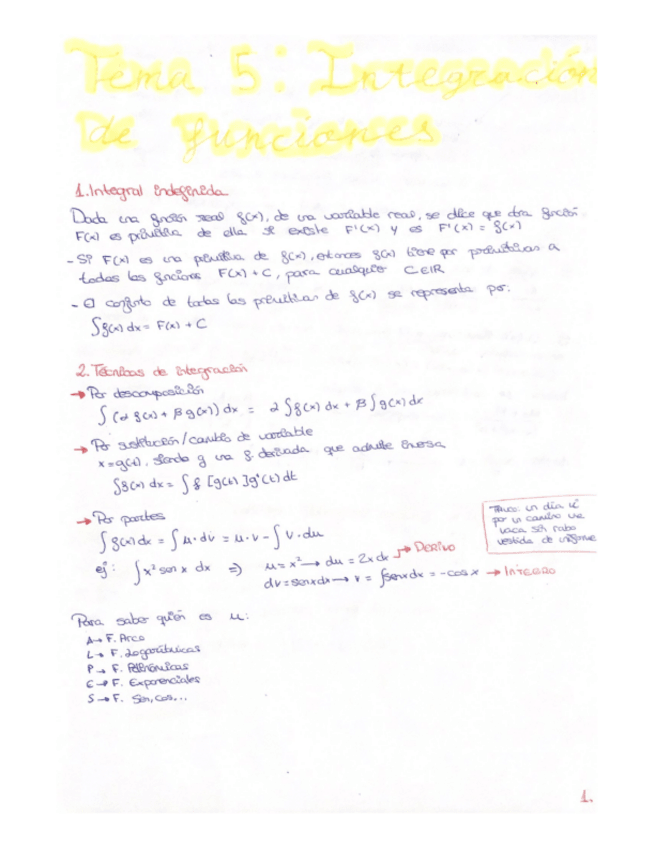 Tema 5: Integración
de funciones
1. Integral indefinida
Dada una función real f(x), de una variable real, se dice que otra función
F(x) es primitiva de ella si existe F'(x) y es F'(x) = f(x)
- Si F(x) es una primitiva de f(x), entonces f(x) tiene por primitivas a
todas las funciones F(x) + C, para cualquier C∈IR
- El conjunto de todas las primitivas de f(x) se representa por:
∫f(x) dx = F(x) + C
2. Técnicas de integración
→ Por descomposición
∫(α f(x) + β g(x)) dx = α ∫f(x) dx + β ∫g(x) dx
→ Por sustitución/cambio de variable
x = g(t), siendo g una f. derivada que admite inversa
∫f(x) dx = ∫f [g(t)]g'(t) dt
→ Por partes
∫f(x) dx = ∫u·dv = u·v - ∫v·du
Truco: un día vi
por un camino una
vaca sin rabo
vestida de uniforme
ej: ∫x² sen x dx ⇒ u = x² → du = 2x dx → DERIVO
dv = senx dx → v = ∫senx dx = -cos x → INTEGRO
Para saber quién es u:
A → F. Arco
L → F. Logarítmicas
P → F. Polinómicas
E → F. Exponenciales
S → F. Sen, cos,...
1.